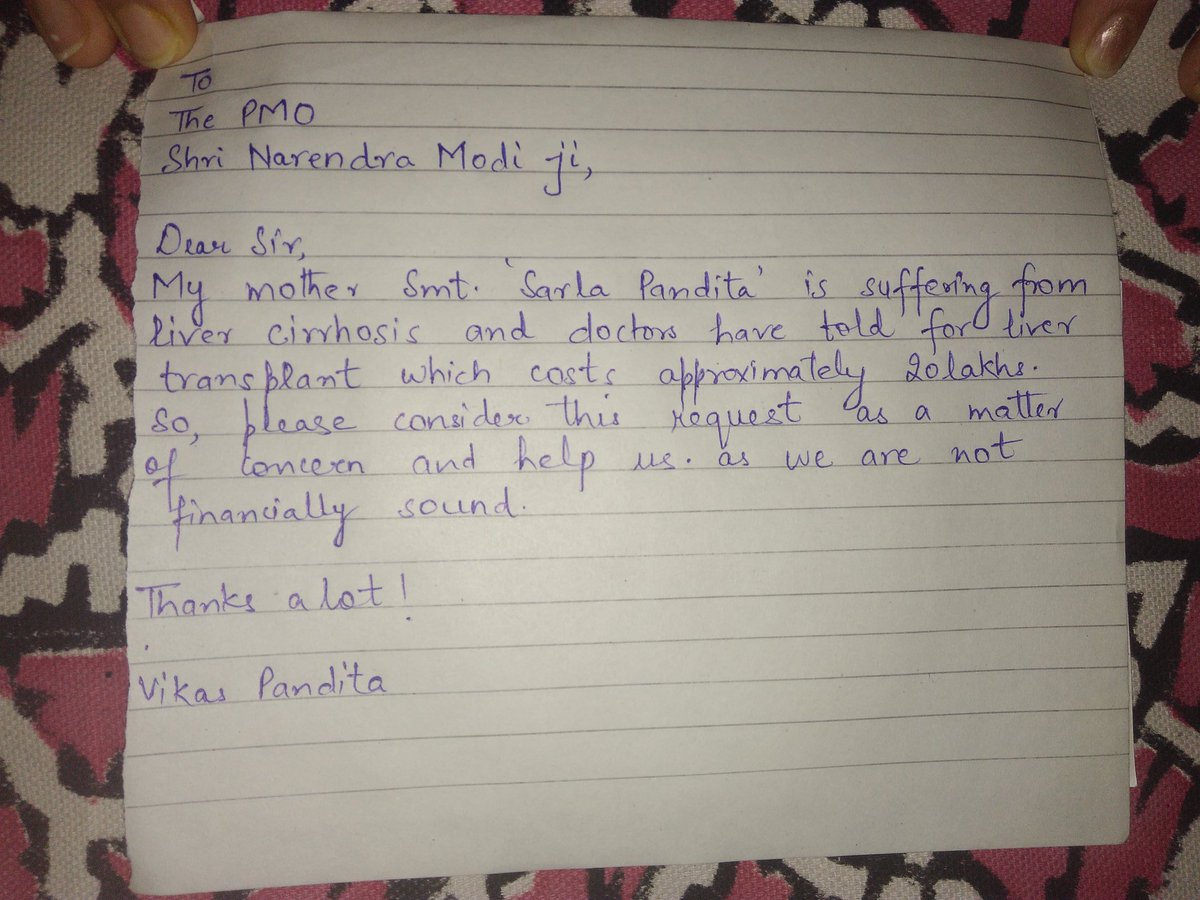 To
The PMO
Shri Narendra Modi ji,
Dear Sir,
My mother Smt. 'Sarla Pandita' is suffering from
liver cirrhosis and doctors have told for liver
transplant which costs approximately 20lakhs.
So, please consider this request as a matter
of concern and help us. as we are not
financially sound.
Thanks a lot!
Vikas Pandita